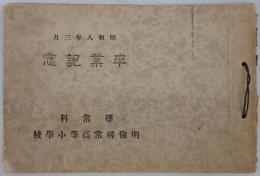 昭和八年三月
卒業記念
尋常科
明倫尋常高等小學校